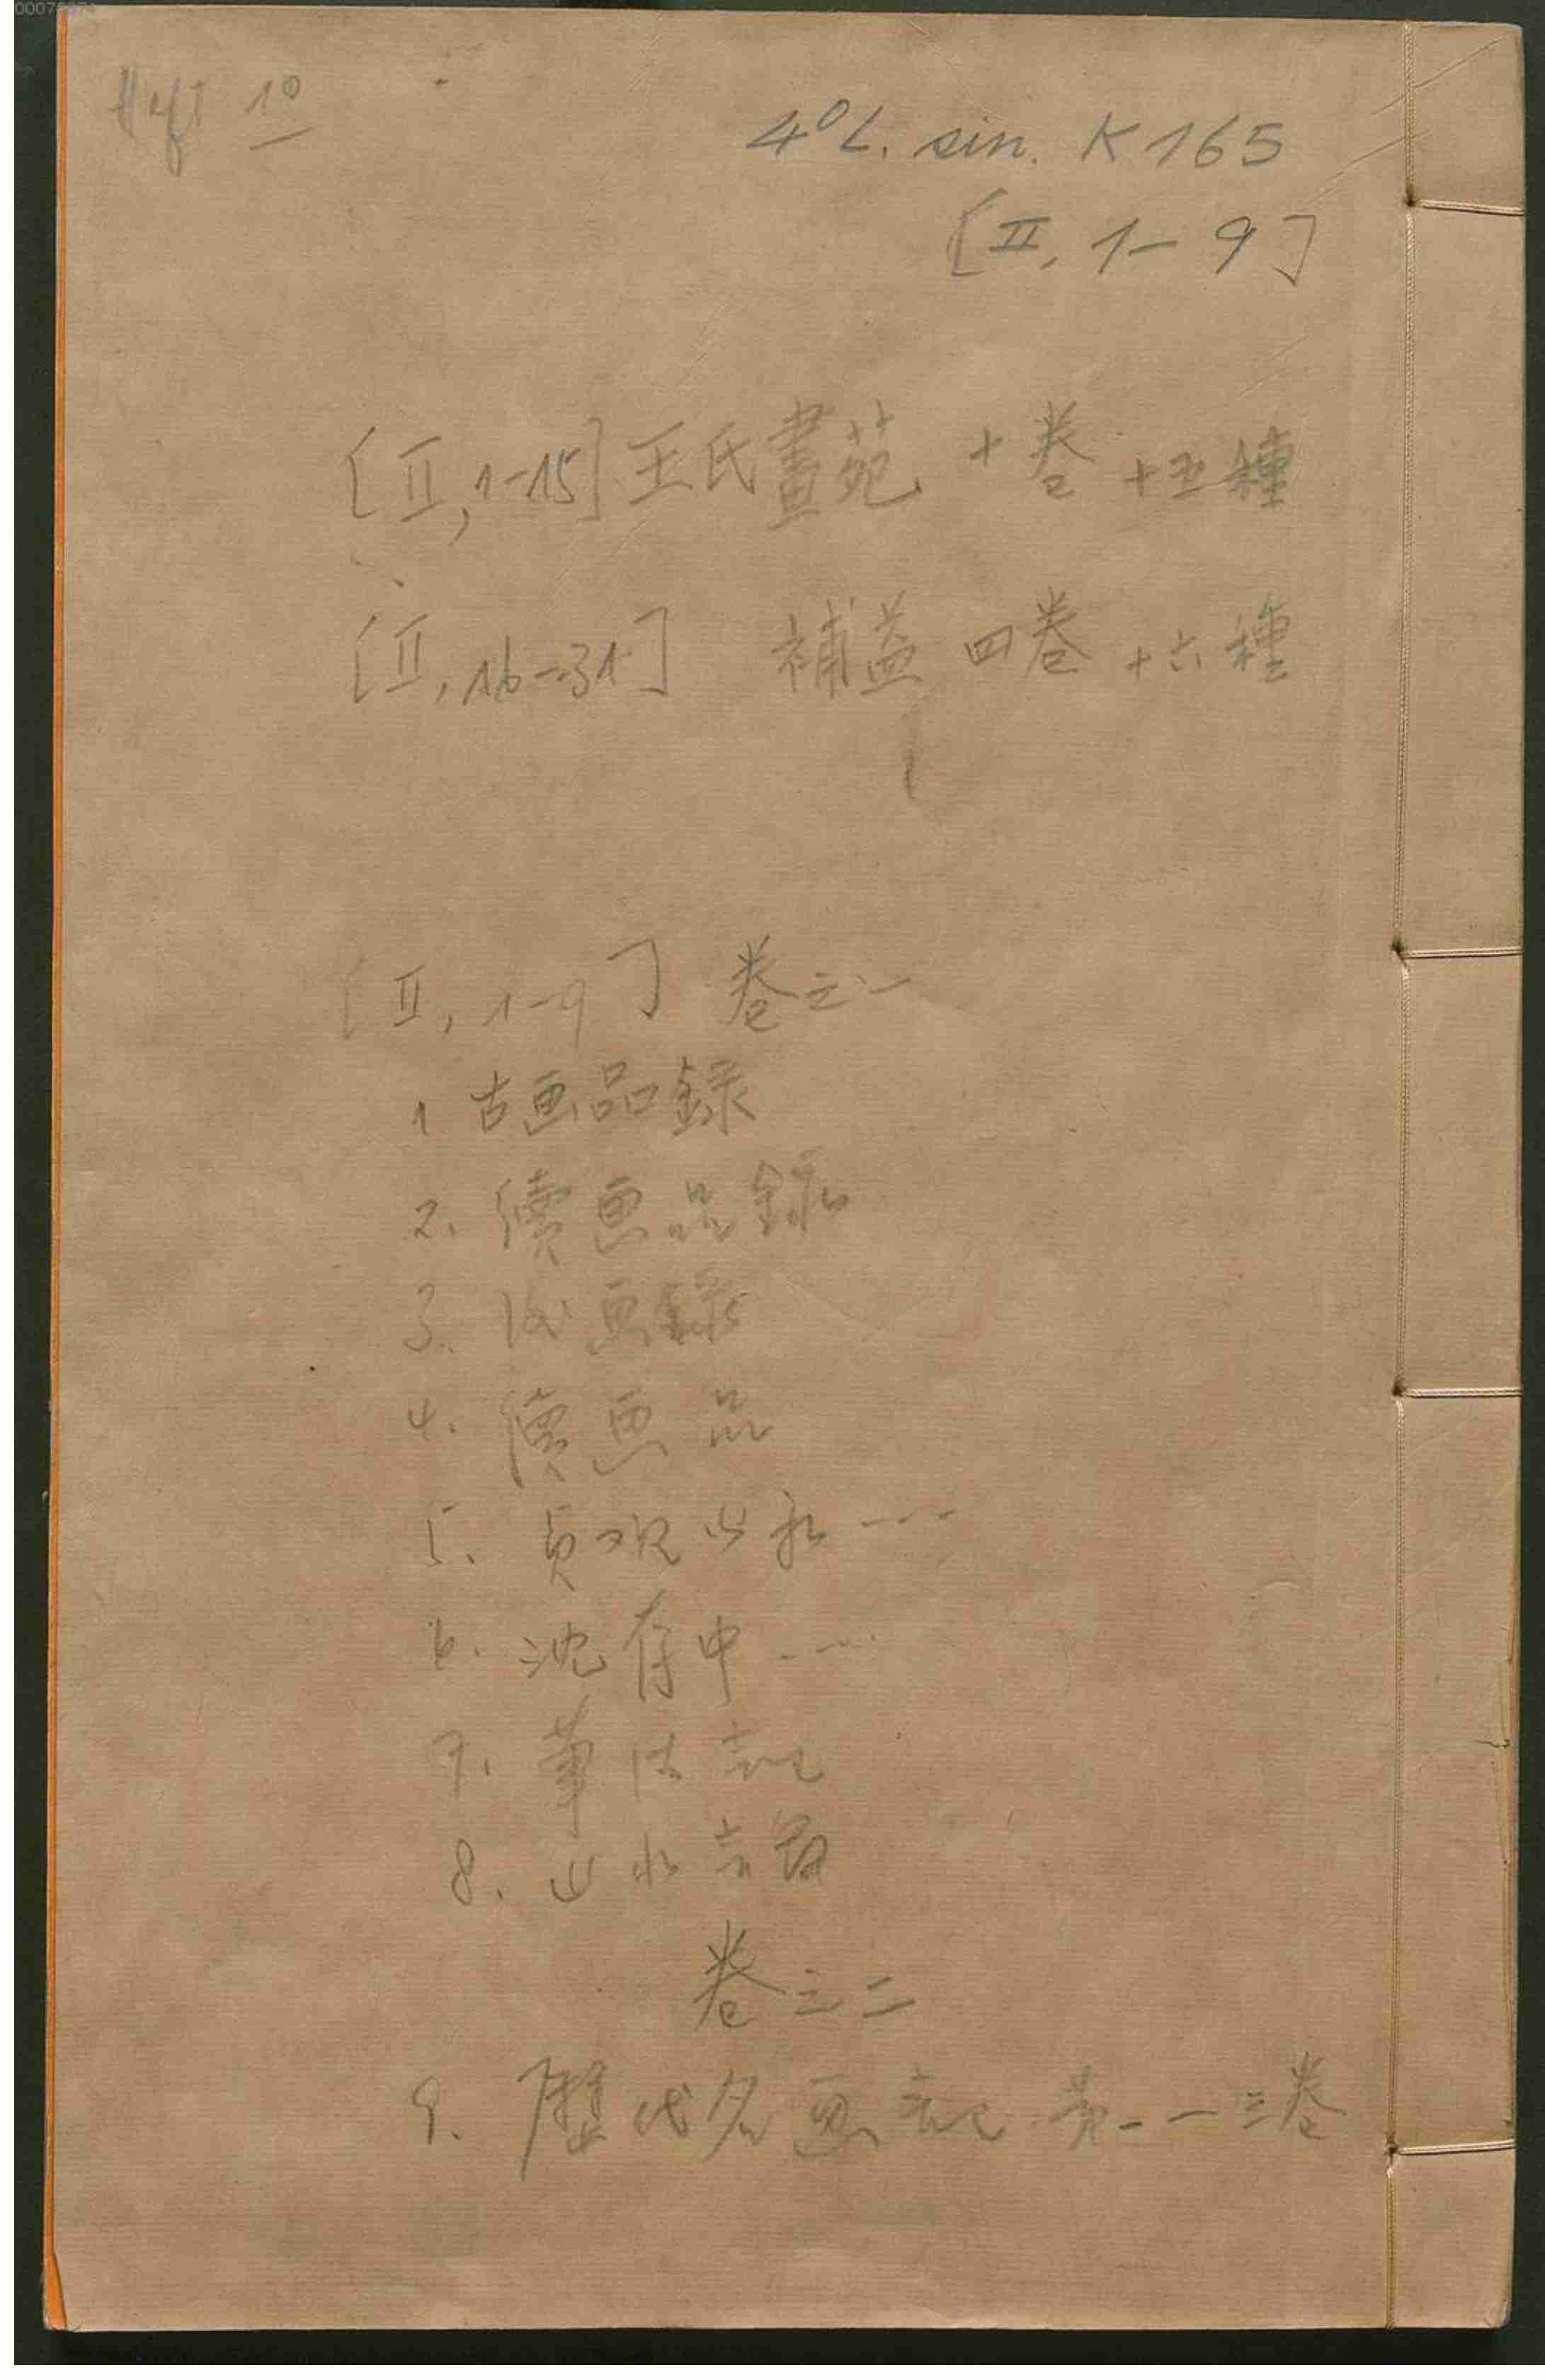 Heft 10
4° L. sin. K 165
[II, 1-9]
[II, 1-15] 王氏畫苑 十卷 十五種
[II, 16-31] 補益 四卷 十六種
[II, 1-9] 卷之一
1 古画品録
2. 續画品録
3. 後画録
4. 續画品
5. 貞观公私 ----
6. 沈存中 ----
7. 筆法記
8. 山水
卷之二
9. 歷代名画記 第一-三卷